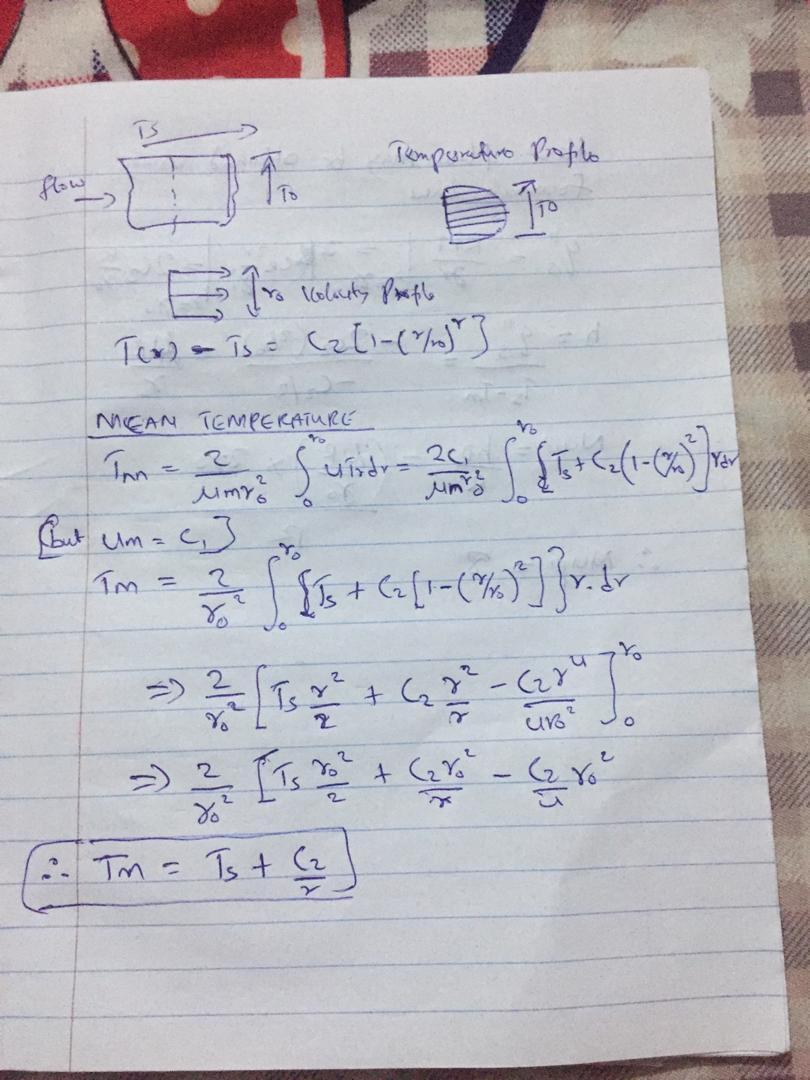 Ts
flow
r0
Temperature Profile
r0
r0 Velocity Profile
T(r) - Ts = C2[1-(r/r0)^2]
MEAN TEMPERATURE
Tm = 2/(umr0^2) ∫_0^r0 uTrdr = 2C1/(umr0^2) ∫_0^r0 {Ts + C2(1-(r/r0)^2] rdr
[but um = C1]
Tm = 2/r0^2 ∫_0^r0 {Ts + C2[1-(r/r0)^2]}r.dr
=> 2/r0^2 [Ts r^2/2 + C2 r^2/2 - C2r^4/4r0^2]_0^r0
=> 2/r0^2 [Ts r0^2/2 + C2r0^2/2 - C2/4 r0^2
∴ Tm = Ts + C2/2